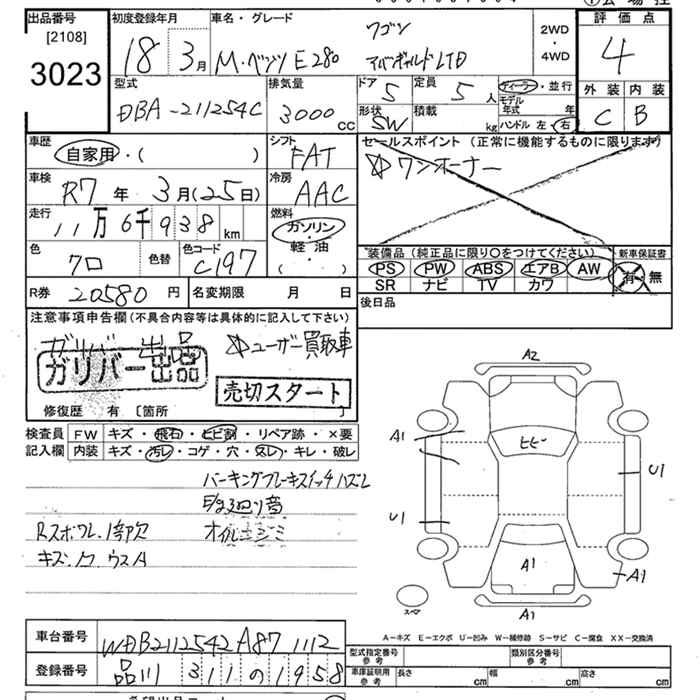 出品番号
[2108]
3023
初度登録年月
18 3月
車名・グレード
ワゴン
M・ベンツ E280 アバンギャルドLTD
2WD
・
4WD
評価点
4
外装 内装
C B
型式
DBA-211254C
排気量
3000cc
ドア 5
形状 SW
定員 5人
積載 kg
ディーラー・並行
モデル年式 年
ハンドル 左・右
車歴
自家用・( )
シフト
FAT
セールスポイント (正常に機能するものに限ります)
ワンオーナー
車検
R7年3月(25日)
冷房
AAC
走行
11万6千938km
燃料
ガソリン
・
軽油
( )
色
クロ
色替
色コード
C197
装備品 (純正品に限り○をつけてください)
PS PW ABS エアB AW
SR ナビ TV カワ
新車保証書
有・無
R券 20580円
名変期限 月 日
後日品
注意事項申告欄(不具合内容等は具体的に記入して下さい)
ガリバー出品 ユーザー買取車
ガリバー出品
売切スタート
修復歴 有 [箇所 ]
検査員記入欄
FW キズ・飛石・ヒビ割・リペア跡・×要
内装 キズ・汚レ・コゲ・穴・スレ・キレ・破レ
パーキングブレーキスイッチハズレ
オイルニジミ
キズ・ク ウスA
A2
A1
ヒビ
U1
U1
A1
A1
A1
スペア
A-キズ E-エクボ U-凹み W-補修跡 S-サビ C-腐食 XX-交換済
車台番号 WDB2112542A871112
登録番号 品川 311 の 1958
型式指定番号
参考
類別区分番号
参考
車庫証明用
参考
長さ cm
幅 cm
高さ cm